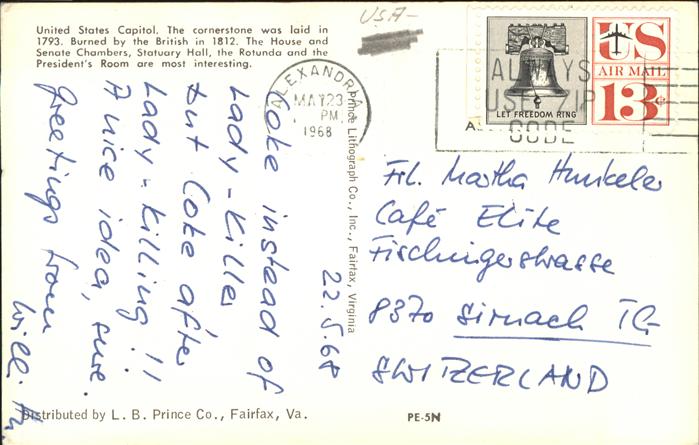 USA-
United States Capitol. The cornerstone was laid in
1793. Burned by the British in 1812. The House and
Senate Chambers, Statuary Hall, the Rotunda and the
President's Room are most interesting.
ALEXANDRIA
MAY 23
PM
1968
ALWAYS
USE ZIP
CODE
LET FREEDOM RING
US
AIR MAIL
13c
22.5.68
Coke instead of
Lady-Killer
but Coke after
Lady-killing!!
A nice idea, sure.
Greetings from
Willi
Prince Lithograph Co., Inc., Fairfax, Virginia
Frl. Martha Hunkeler
Café Elite
Fischingerstrasse
8370 Sirnach TG
SWITZERLAND
Distributed by L. B. Prince Co., Fairfax, Va.
PE-5N